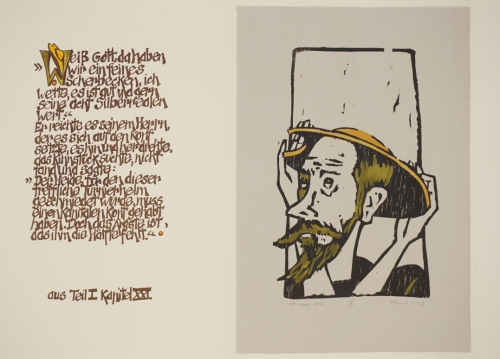 „Weiß Gott, da haben
wir ein feines
Scherbecken, ich
wette, es ist gut und gern
seine acht Silberrealen
wert.“
Er reichte es seinem Herrn,
der es sich auf den Kopf
setzte, es hin und her drehte,
das Kinnstück suchte, nicht
fand und sagte:
„Der Heide, für den dieser
treffliche Turnierhelm
geschmiedet wurde, muss
einen kapitalen Kopf gehabt
haben. Doch das Ärgste ist,
das ihm die Hälfte fehlt.“
aus Teil I Kapitel XXI